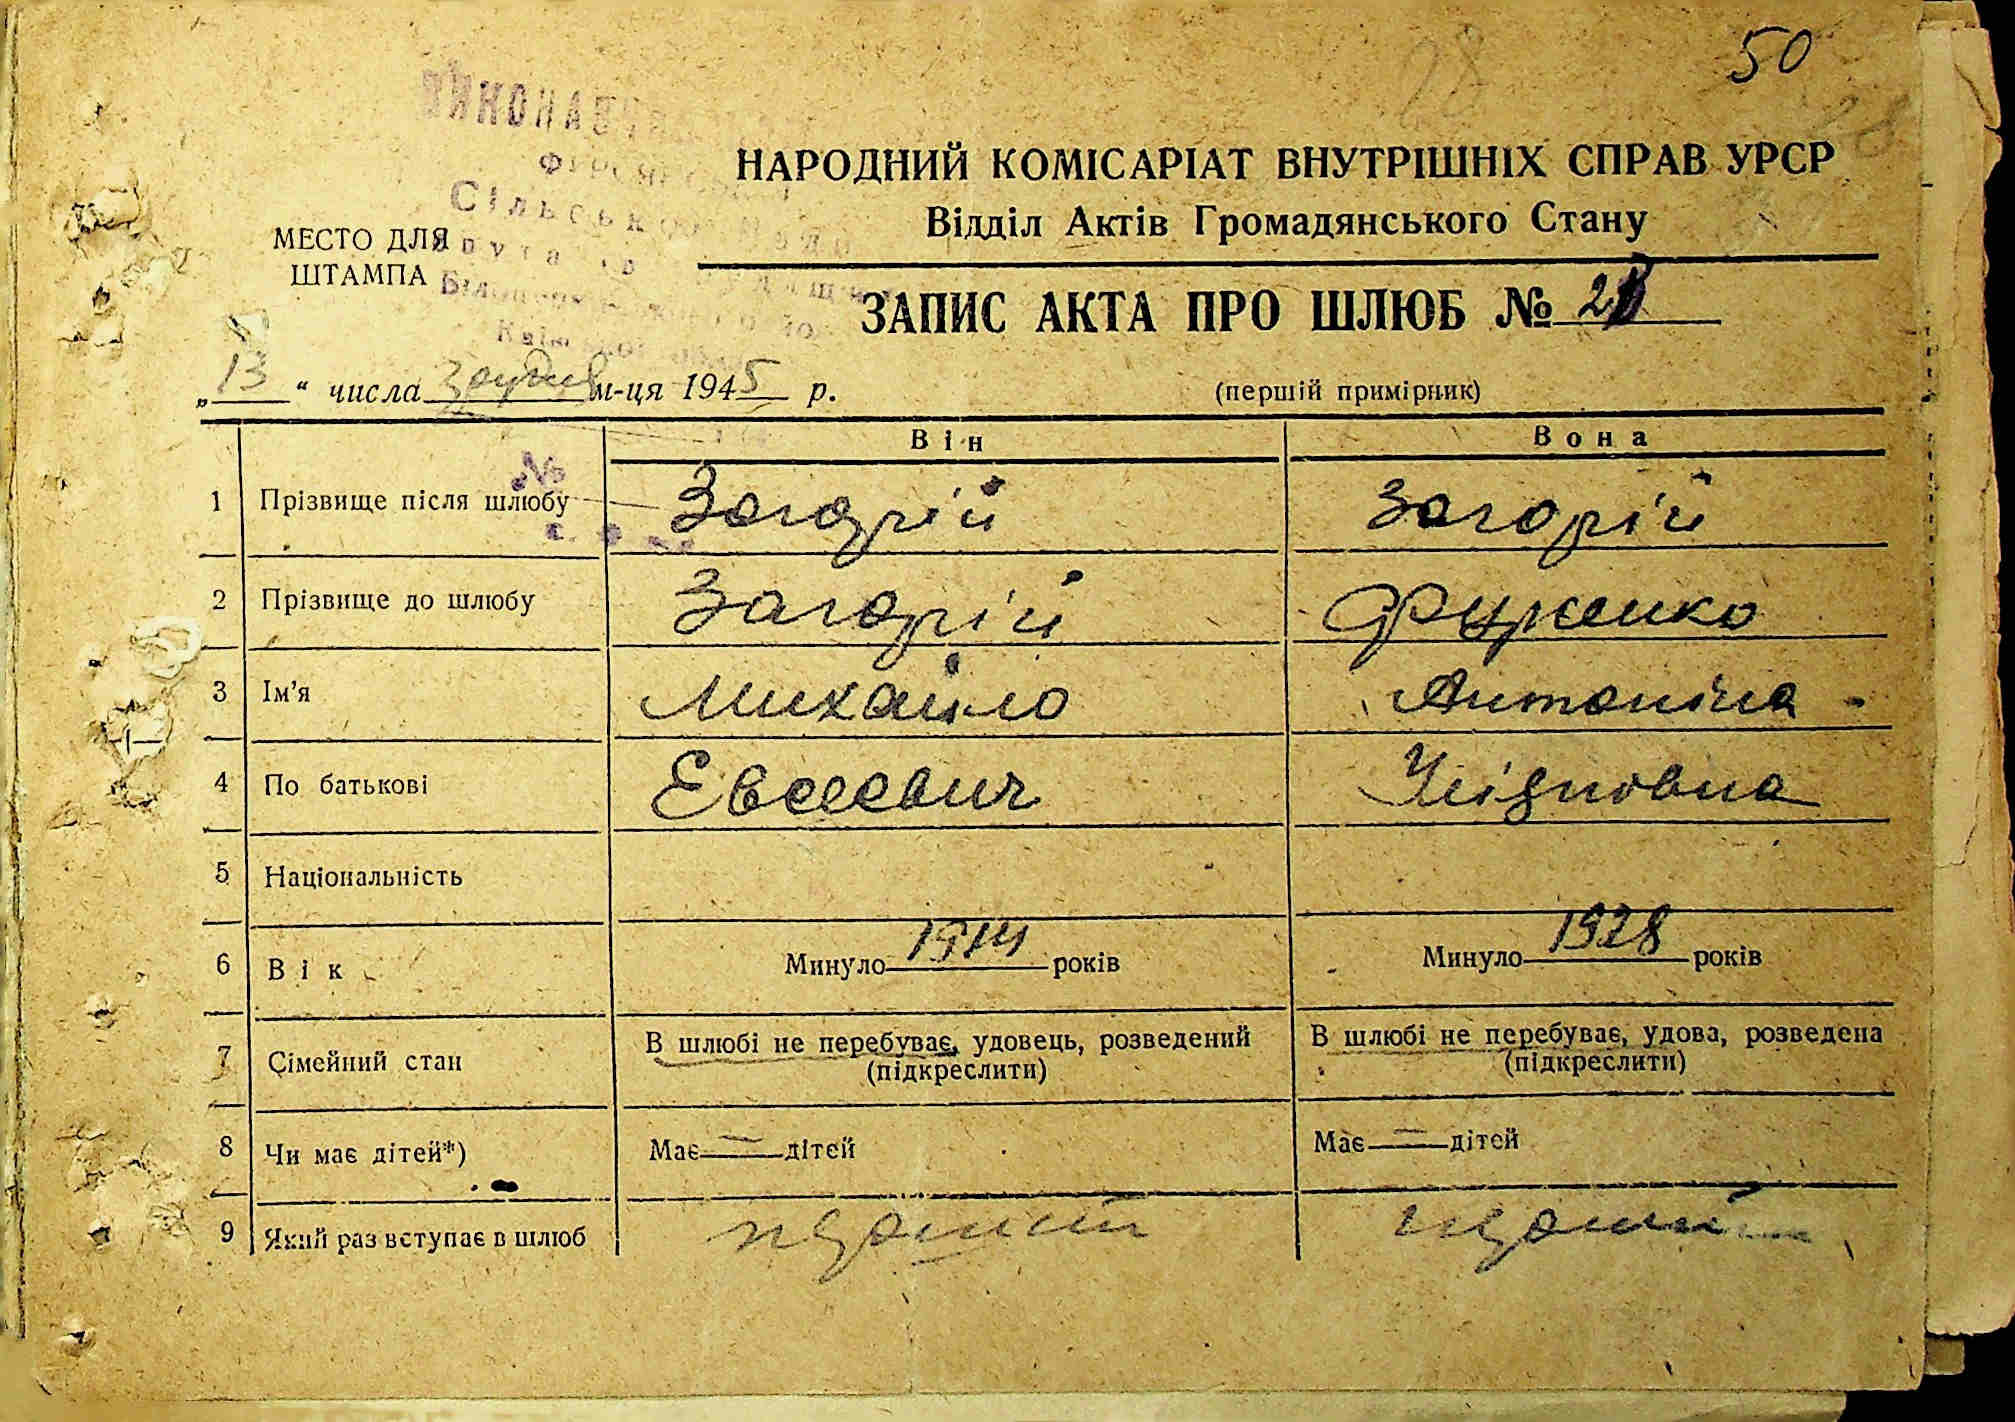 50
28
НАРОДНИЙ КОМІСАРІАТ ВНУТРІШНІХ СПРАВ УРСР
Відділ Актів Громадянського Стану
МЕСТО ДЛЯ
ШТАМПА
ЗАПИС АКТА ПРО ШЛЮБ №
„13“ числа Згрудня м-ця 1945 р.
(першій примірник)
Він Вона
1 Прізвище після шлюбу Загорій Загорій
2 Прізвище до шлюбу Загорій Фурсенко
3 Ім'я Михайло Антоніна
4 По батькові Евсеевич
5 Національність
6 Вік Минуло 1914 років Минуло 1928 років
7 Сімейний стан В шлюбі не перебуває, удовець, розведений В шлюбі не перебуває, удова, розведена
(підкреслити) (підкреслити)
8 Чи має дітей*) Має — дітей Має — дітей
9 Який раз вступає в шлюб